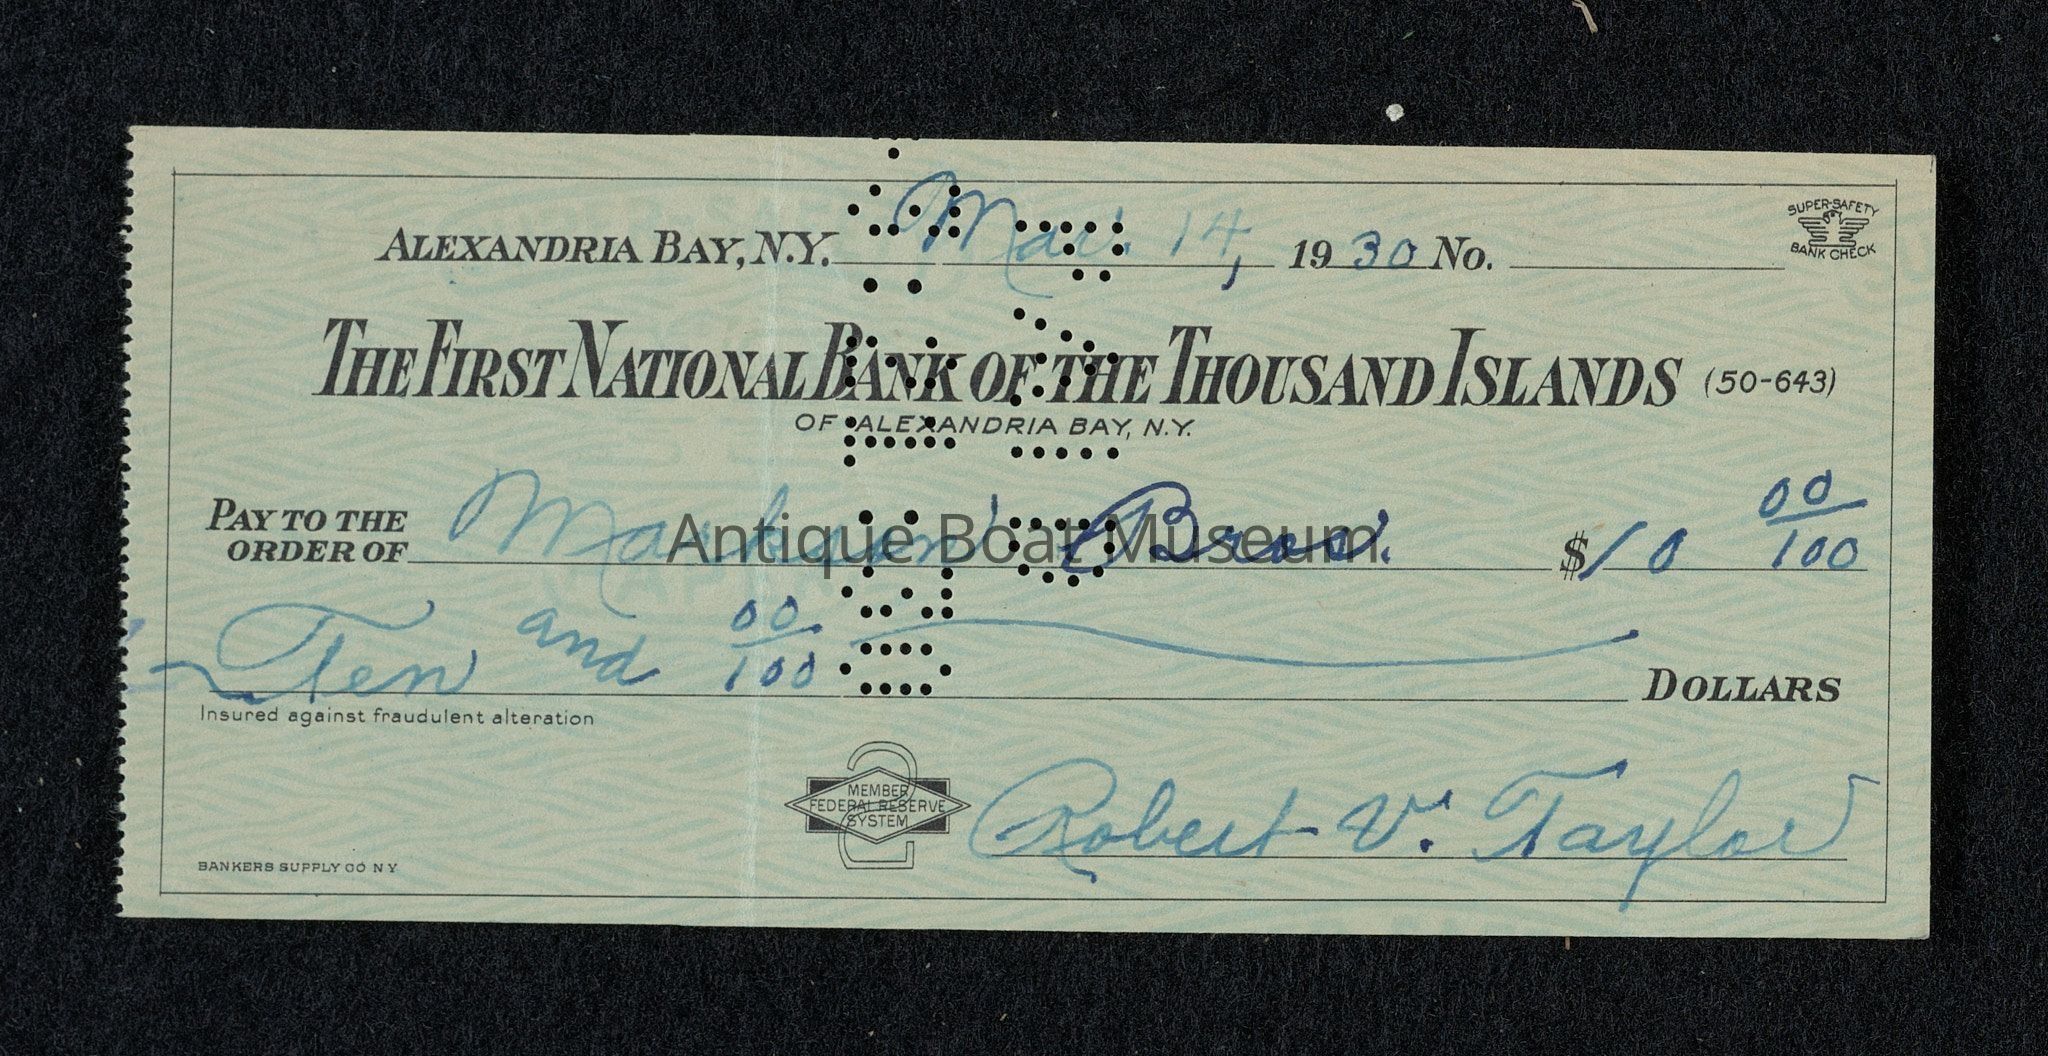 ALEXANDRIA BAY, N.Y. Mar. 14, 1930 No.
SUPER-SAFETY
BANK CHECK
THE FIRST NATIONAL BANK OF THE THOUSAND ISLANDS (50-643)
OF ALEXANDRIA BAY, N.Y.
PAY TO THE
ORDER OF Bros. $ 10 00/100
Antique Boat Museum
Ten and 00/100 DOLLARS
Insured against fraudulent alteration
MEMBER
FEDERAL RESERVE
SYSTEM
Robert V. Taylor
BANKERS SUPPLY CO N Y